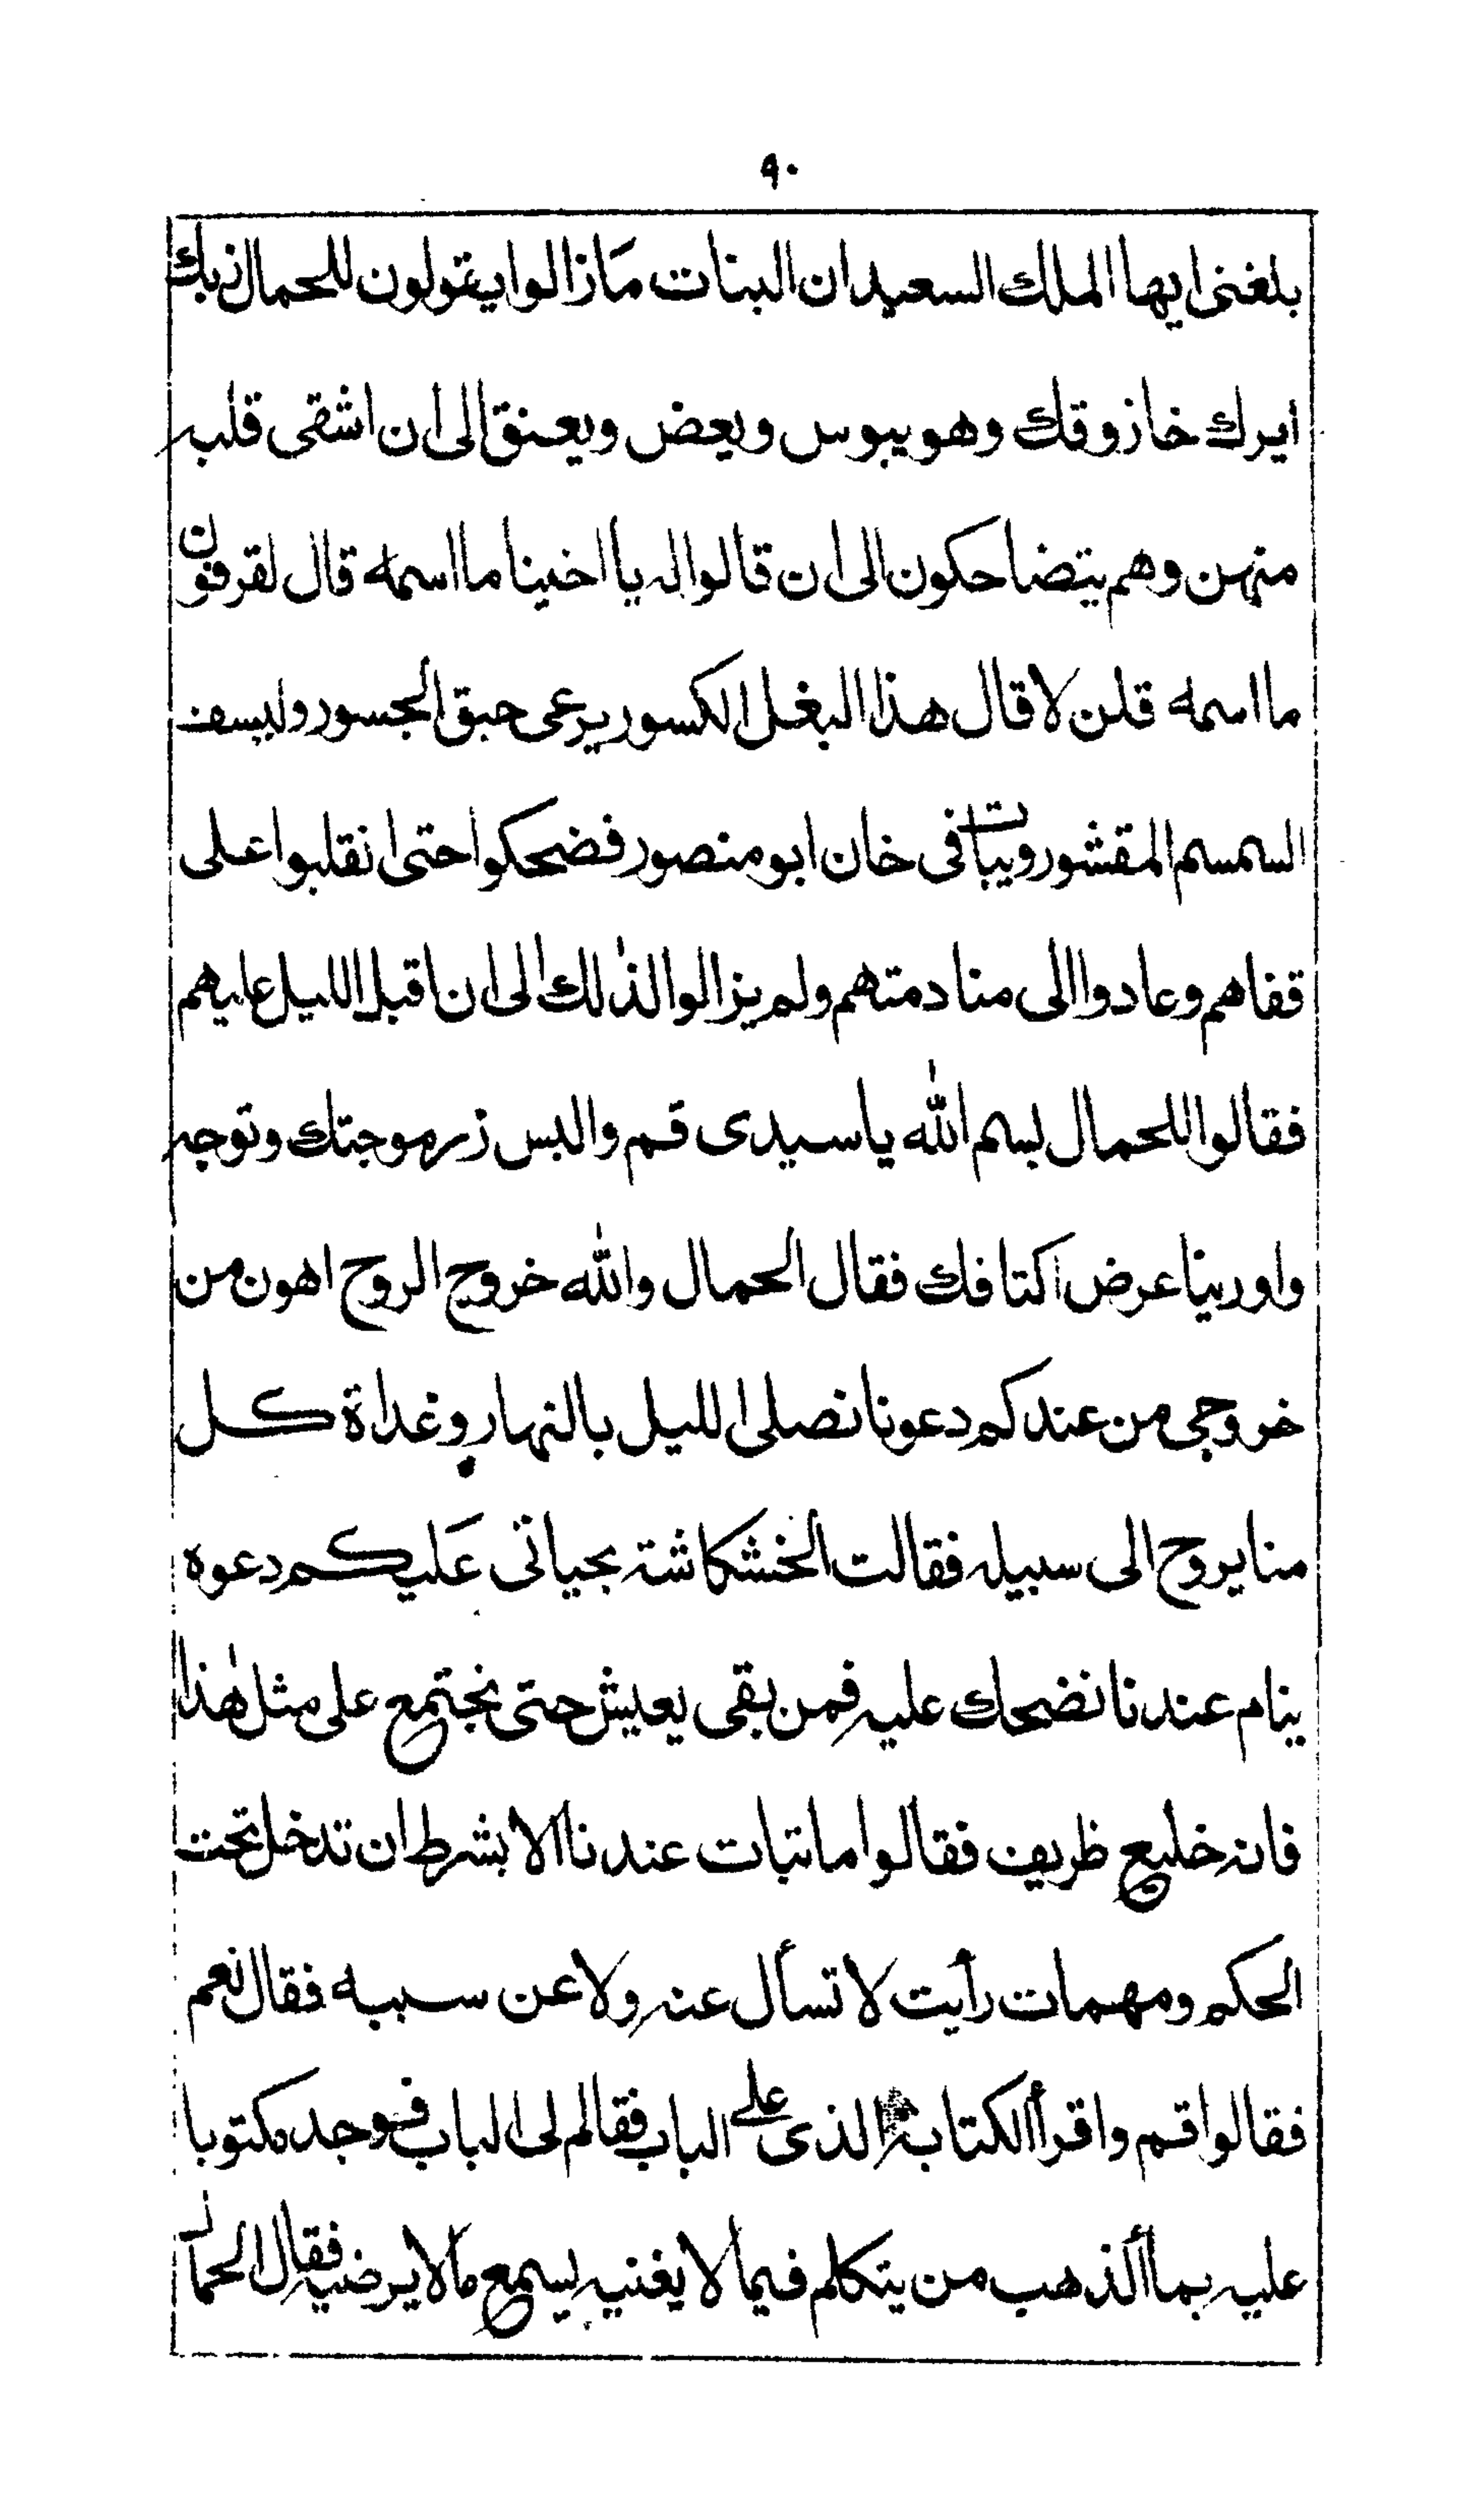 ٩٠
بلغنى ايها الملك السعيد ان البنات مَازالوا يقولون للحمال زبك
ايرك خازوقك وهو يبوس ويعض ويعنق الى ان اشقى قلبه
منهن وهم يتضاحكون الى ان قالوا له يا اخينا ما اسمه قال
ما اسمه قلن لا قال هذا البغل الكسور يرعى حبق الجسور وليسف
السمسم المقشور ويبات فى خان ابو منصور فضحكوا حتى انقلبوا على
قفاهم وعادوا الى منادمتهم ولم يزالوا لذلك الى ان اقبل الليل عليهم
فقالوا للحمال بسم الله ياسيدى قم والبس زرموجتك وتوجه
واورينا عرض اكتافك فقال الحمال والله خروج الروح اهون من
خروجى من عندكم دعونا نصلى الليل بالنهار وغداة كل
منا يروح الى سبيله فقالت الخشكاشة بحياتى عَليكم دعوه
ينام عندنا نضحك عليه فمن بقى يعيش حتى نجتمع على مثل هٰذا
فانه خليع ظريف فقالوا ما تبات عندنا الا بشرط ان تدخل تحت
الحكم ومهمات رأيت لا تسأل عنه ولا عن سببه فقال نعم
فقالوا قم واقرأ الكتابة الذى على الباب فقالم لى الباب فوجد مكتوبا
عليه بماألذهب من يتكلم فيما لا يغنيه يسمع مالا يرضيه فقال الحمال